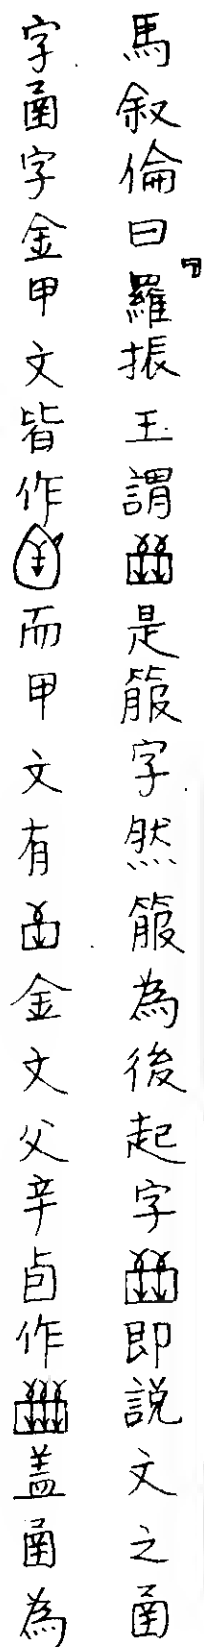 馬叙倫曰『羅振玉謂是箙字然箙為後起字即説文之𤰈
字𤰈字金甲文皆作而甲文有金文父辛卣作蓋𤰈為